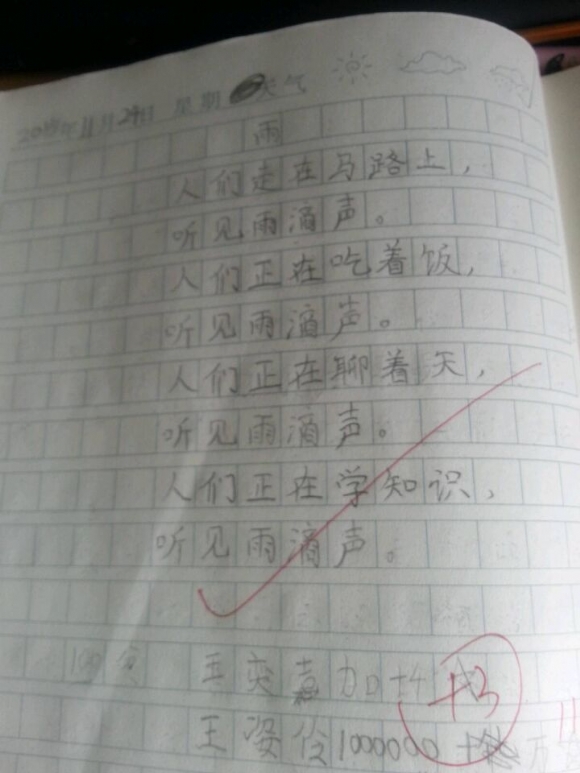 2019年11月29日 星期 天气
雨
人们走在马路上，
听见雨滴声。
人们正在吃着饭，
听见雨滴声。
人们正在聊着天，
听见雨滴声。
人们正在学知识，
听见雨滴声。
100分 王奕 加
+3
王姿伶1000000 万